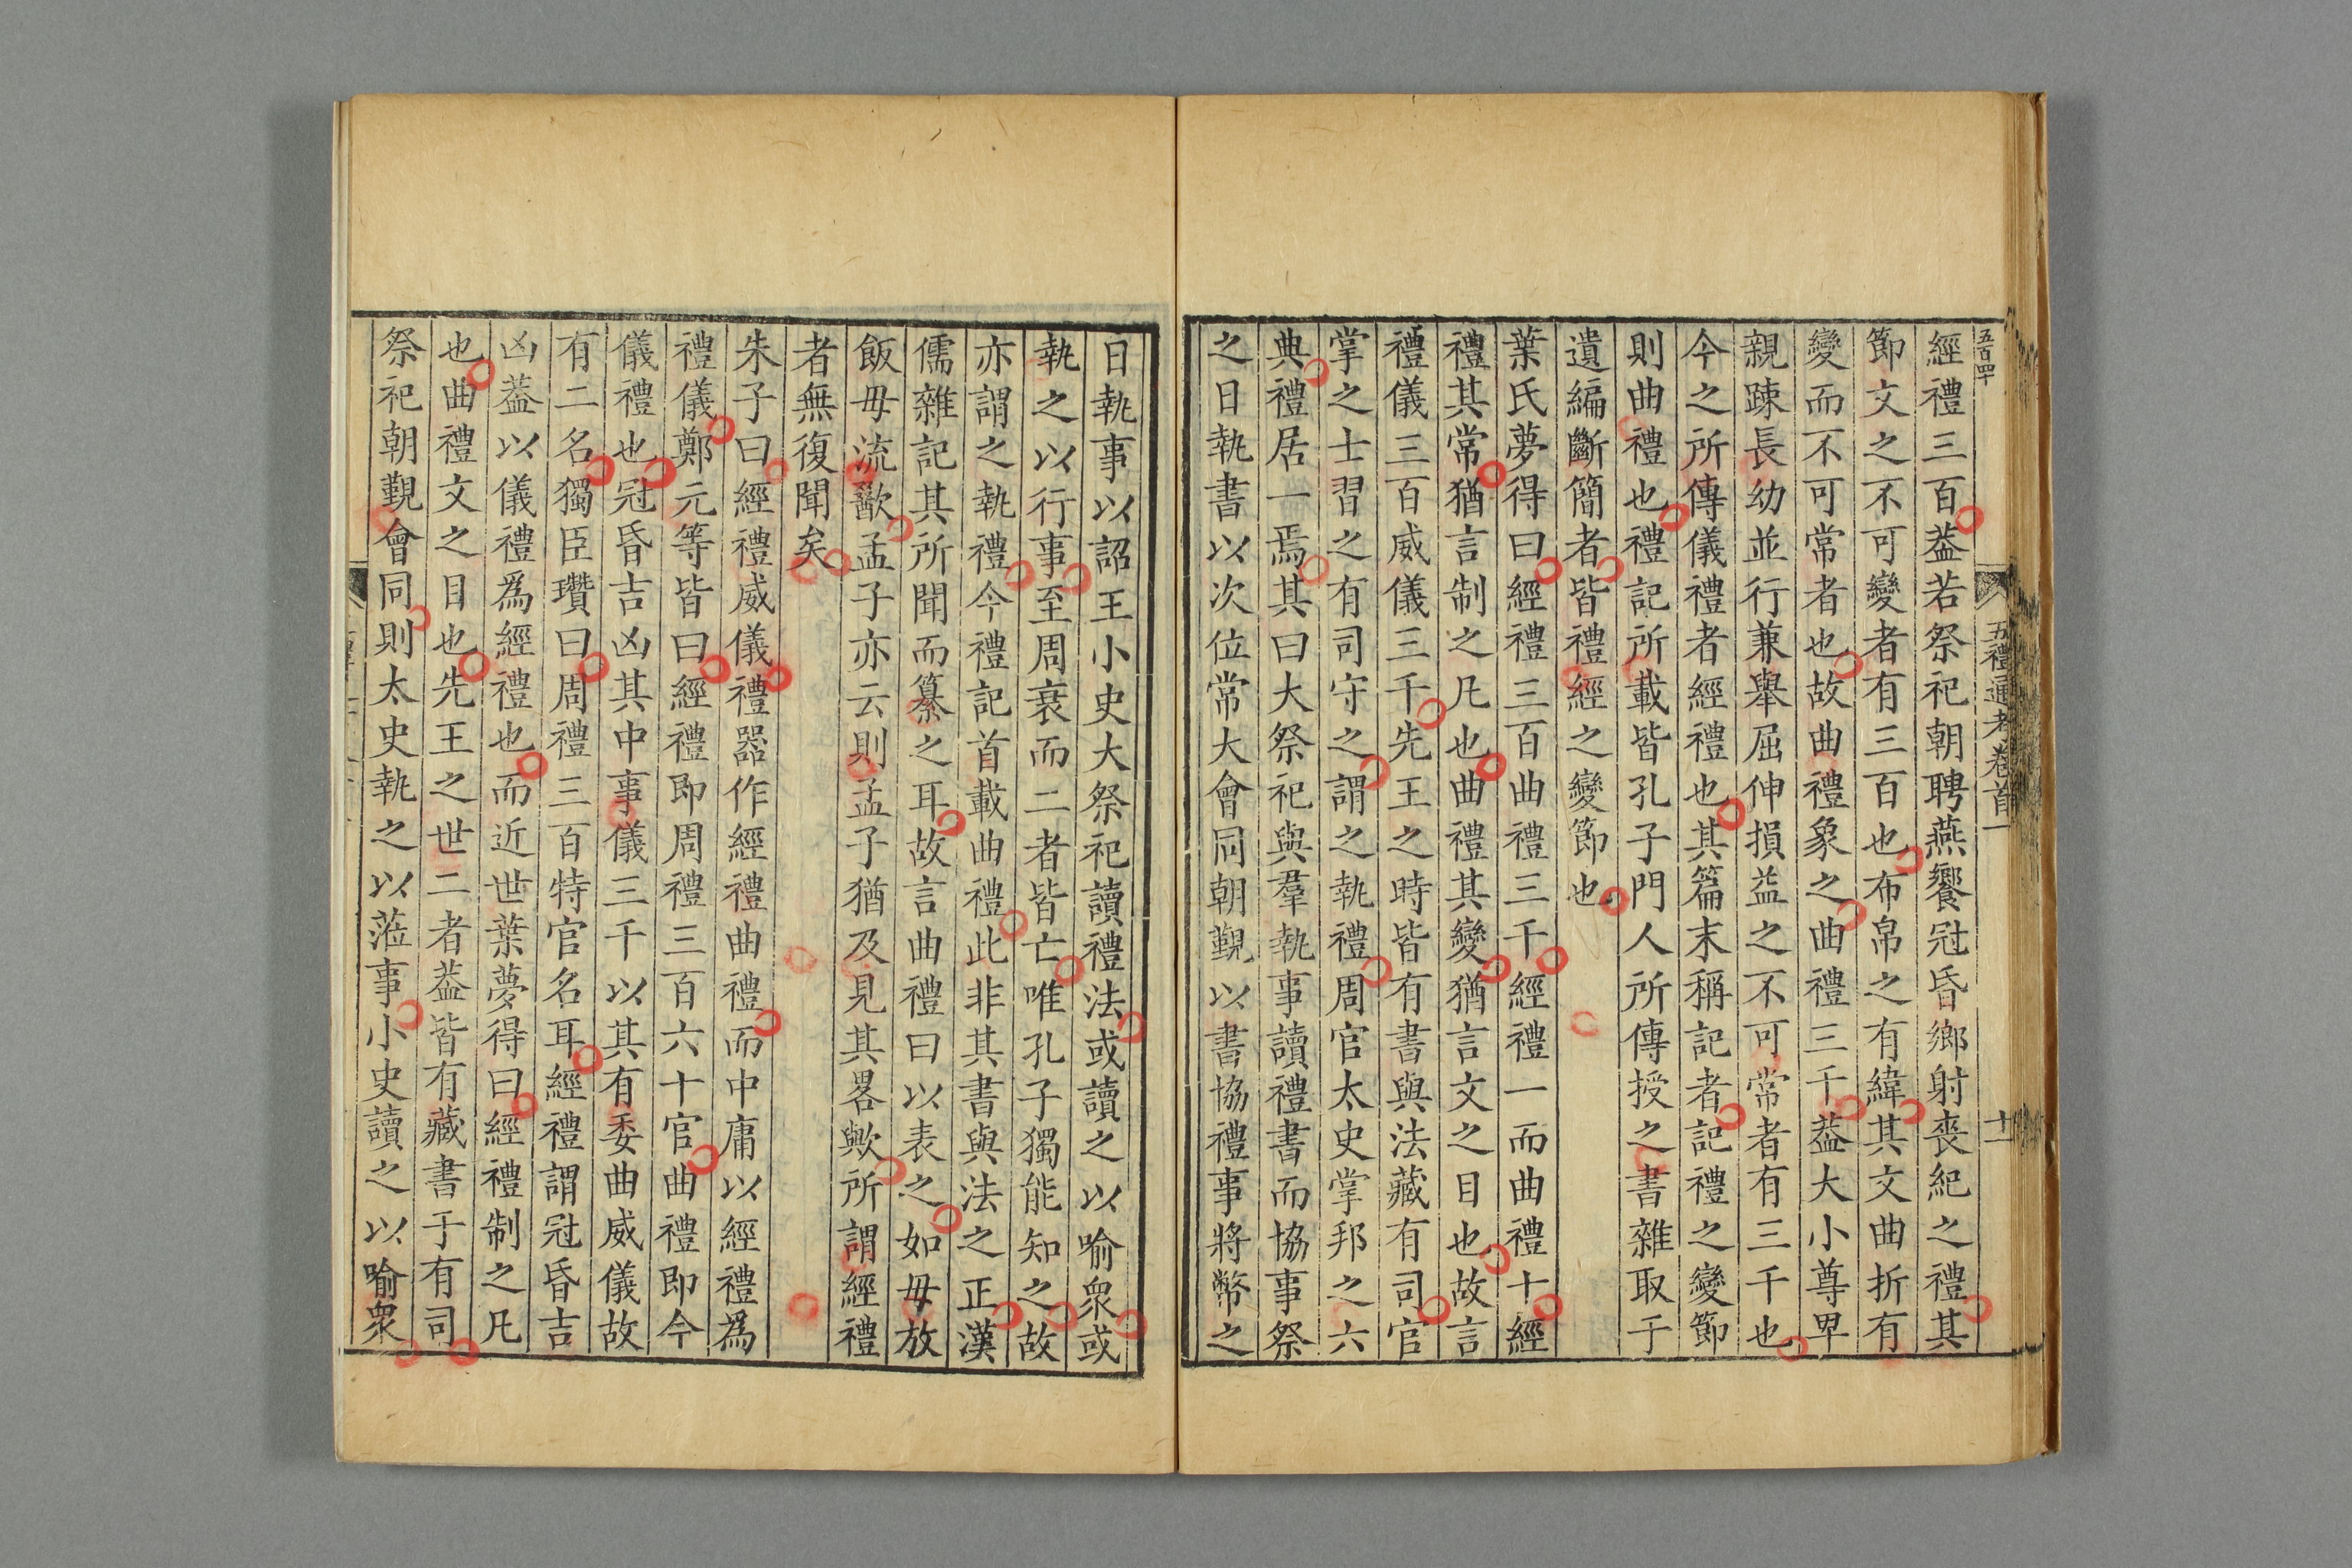 五百四
五禮通考卷首一
十二
經禮三百葢若祭祀朝聘燕饗冠昏鄉射喪紀之禮其
節文之不可變者有三百也布帛之有緯其文曲折有
變而不可常者也故曲禮象之曲禮三千葢大小尊𤰞
親踈長幼並行兼舉屈伸損益之不可常者有三千也
今之所傳儀禮者經禮也其篇末稱記者記禮之變節
則曲禮也禮記所載皆孔子門人所傳授之書雜取于
遺編斷簡者皆禮經之變節也
葉氏夢得曰經禮三百曲禮三千經禮一而曲禮十經
禮其常猶言制之凡也曲禮其變猶言文之目也故言
禮儀三百威儀三千先王之時皆有書與法藏有司官
掌之士習之有司守之謂之執禮周官太史掌邦之六
典禮居一焉其曰大祭祀與羣執事讀禮書而協事祭
之日執書以次位常大會同朝覲以書協禮事將幣之
日執事以詔王小史大祭祀讀禮法或讀之以喻衆或
執之以行事至周衰而二者皆亡唯孔子獨能知之故
亦謂之執禮今禮記首載曲禮此非其書與法之正漢
儒雜記其所聞而纂之耳故言曲禮曰以表之如毋放
飯毋流歠孟子亦云則孟子猶及見其畧歟所謂經禮
者無復聞矣
朱子曰經禮威儀禮器作經禮曲禮而中庸以經禮爲
禮儀鄭元等皆曰經禮即周禮三百六十官曲禮即今
儀禮也冠昏吉凶其中事儀三千以其有委曲威儀故
有二名獨臣瓚曰周禮三百特官名耳經禮謂冠昏吉
凶葢以儀禮爲經禮也而近世葉夢得曰經禮制之凡
也曲禮文之目也先王之世二者葢皆有藏書于有司
祭祀朝覲會同則太史執之以蒞事小史讀之以喻衆